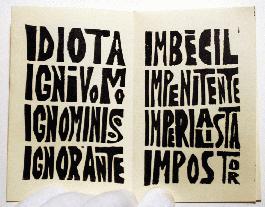 IDIOTA
IGNIVOMO
IGNOMINIS
IGNORANTE
IMBÈCIL
IMPENITENTE
IMPERIALISTA
IMPOSTOR